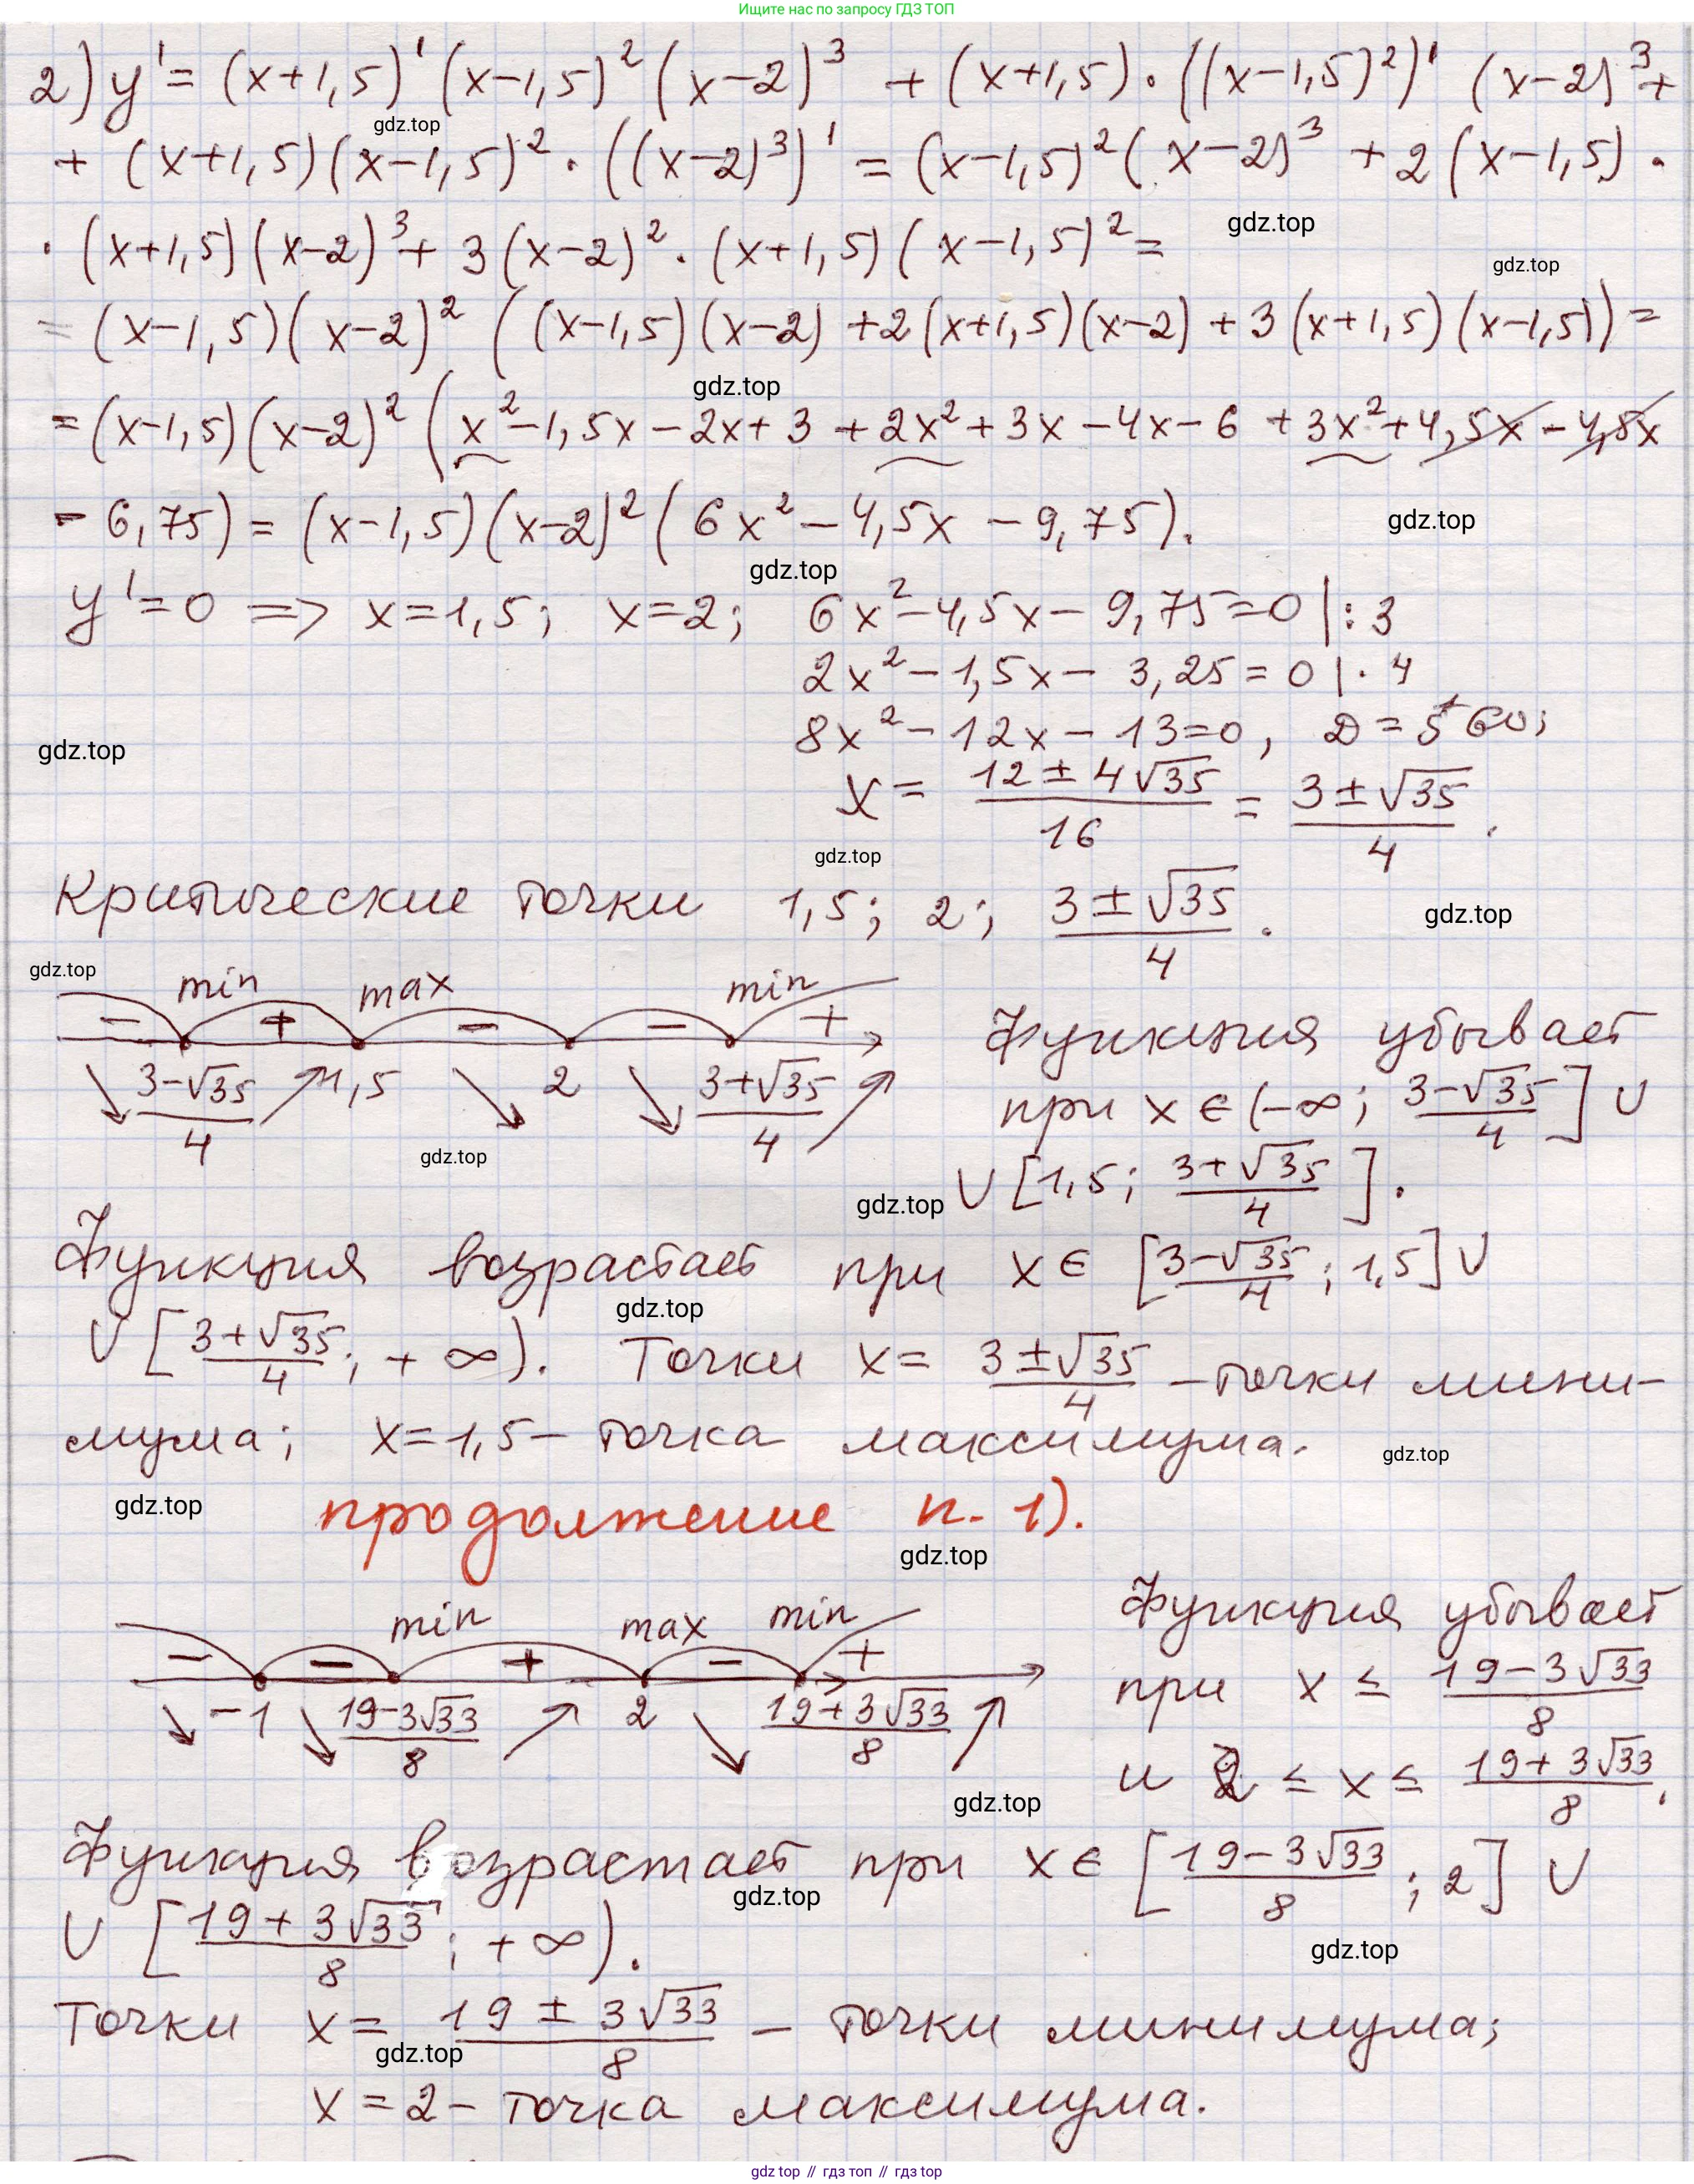 Ищите нас по запросу ГДЗ ТОП
2) y' = (x+1,5)'(x-1,5)²(x-2)³ + (x+1,5)·((x-1,5)²)' (x-2)³ +
gdz.top
+ (x+1,5)(x-1,5)²·((x-2)³)' = (x-1,5)²(x-2)³ + 2(x-1,5)·
gdz.top
·(x+1,5)(x-2)³ + 3(x-2)²·(x+1,5)(x-1,5)² =
gdz.top
= (x-1,5)(x-2)² ((x-1,5)(x-2) + 2(x+1,5)(x-2) + 3(x+1,5)(x-1,5)) =
gdz.top
= (x-1,5)(x-2)² (x² - 1,5x - 2x + 3 + 2x² + 3x - 4x - 6 + 3x² + 4,5x - 4,5x
- 6,75) = (x-1,5)(x-2)² (6x² - 4,5x - 9,75).
gdz.top
gdz.top
y' = 0 => x = 1,5; x = 2; 6x² - 4,5x - 9,75 = 0 |: 3
2x² - 1,5x - 3,25 = 0 |· 4
8x² - 12x - 13 = 0, D = 560;
gdz.top
x = (12 ± 4√35)/16 = (3 ± √35)/4.
gdz.top
Критические точки 1,5; 2; (3 ± √35)/4.
gdz.top
gdz.top
min max min
− + − − +
(3-√35)/4 1,5 2 (3+√35)/4
gdz.top
Функция убывает
при x ∈ (-∞; (3-√35)/4] ∪
∪ [1,5; (3+√35)/4].
gdz.top
Функция возрастает при x ∈ [(3-√35)/4; 1,5] ∪
gdz.top
∪ [(3+√35)/4; +∞). Точки x = (3 ± √35)/4 - точки мини-
мума; x = 1,5 - точка максимума.
gdz.top
gdz.top
продолжение п. 1).
gdz.top
min max min
− − + − +
-1 (19-3√33)/8 2 (19+3√33)/8
Функция убывает
при x ≤ (19-3√33)/8
и 2 ≤ x ≤ (19+3√33)/8.
gdz.top
Функция возрастает при x ∈ [(19-3√33)/8; 2] ∪
gdz.top
∪ [(19+3√33)/8; +∞).
gdz.top
Точки x = (19 ± 3√33)/8 - точки минимума;
gdz.top
x = 2 - точка максимума.
gdz top // гдз топ // гдз top